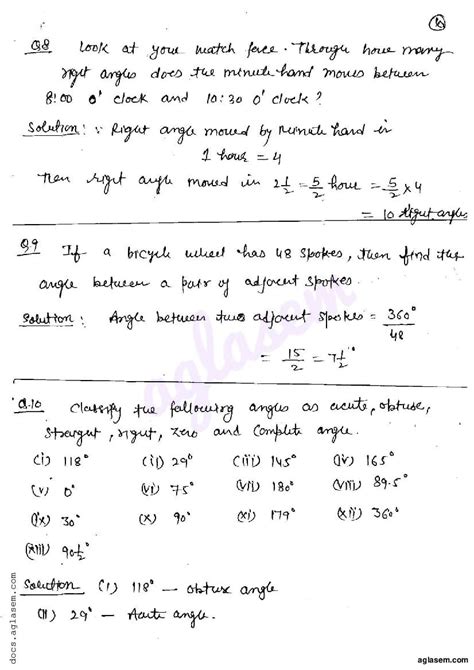 Q8 Look at your watch face. Through how many
right angles does the minute hand moves between
8:00 O' clock and 10:30 O' clock?
Solution: ∵ Right angle moved by Minute hand in
1 hour = 4
Then right angle moved in 2 1/2 = 5/2 hour = 5/2 × 4
= 10 Right angles
Q9 If a bicycle wheel has 48 spokes, then find the
angle between a pair of adjacent spokes.
Solution: Angle between two adjacent spokes = 360°/48
= 15/2 = 7 1/2°
Q.10 Classify the following angles as acute, obtuse,
straight, right, zero and complete angle.
(i) 118° (ii) 29° (iii) 145° (iv) 165°
(v) 0° (vi) 75° (vii) 180° (viii) 89.5°
(ix) 30° (x) 90° (xi) 179° (xii) 360°
(xiii) 90 1/2°
Solution (i) 118° — obtuse angle
(ii) 29° — Acute angle.
aglasem
docs.aglasem.com
aglasem.com